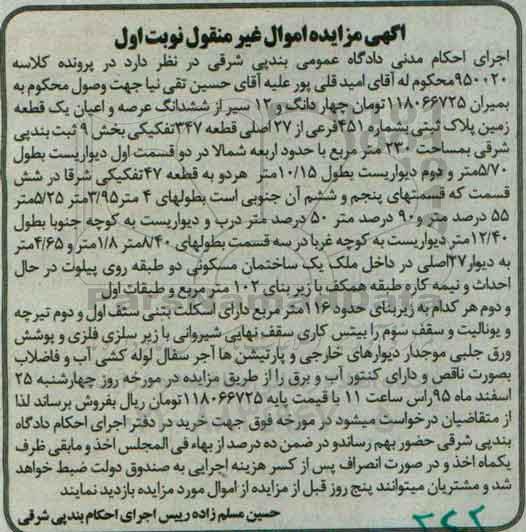 آگهی مزایده اموال غیر منقول نوبت اول
اجرای احکام مدنی دادگاه عمومی بندپی شرقی در نظر دارد در پرونده کلاسه
۹۵۰۰۲۰ محکوم له آقای امید قلی پور علیه آقای حسین تقی نیا جهت وصول محکوم به
بمیزان ۱۱۸۰۶۶۷۲۵ تومان چهار دانگ و ۱۲ سیر از ششدانگ عرصه و اعیان یک قطعه
زمین پلاک ثبتی بشماره ۴۵۱ فرعی از ۲۷ اصلی قطعه ۳۴۷ تفکیکی بخش ۹ ثبت بندپی
شرقی بمساحت ۲۳۰ متر مربع با حدود اربعه شمالا در دو قسمت اول دیواریست بطول
۵/۷۰متر و دوم دیواریست بطول ۱۰/۱۵متر هردو به قطعه ۴۷ تفکیکی شرقا در شش
قسمت که قسمتهای پنجم و ششم آن جنوبی است بطولهای ۴ متر ۳/۹۵متر ۵/۲۵متر
۵۵ درصد متر و ۹۰ درصد متر ۵۰ درصد متر درب و دیواریست به کوچه جنوبا بطول
۱۲/۴۰متر دیواریست به کوچه غربا در سه قسمت بطولهای ۸/۴۰متر ۱/۸متر و ۴/۶۵متر
به دیوار ۲۷اصلی در داخل ملک یک ساختمان مسکونی دو طبقه روی پیلوت در حال
احداث و نیمه کاره طبقه همکف با زیر بنای ۱۰۲ متر مربع و طبقات اول
و دوم هر کدام به زیربنای حدود ۱۱۶متر مربع دارای اسکلت بتنی سقف اول و دوم تیرچه
و یونالیت و سقف سوم را بیتس کاری سقف نهایی شیروانی با زیر سلزی فلزی و پوشش
ورق جلبی موجدار دیوارهای خارجی و پارتیشن ها آجر سفال لوله کشی آب و فاضلاب
بصورت ناقص و دارای کنتور آب و برق را از طریق مزایده در مورخه روز چهارشنبه ۲۵
اسفند ماه ۹۵راس ساعت ۱۱ با قیمت پایه ۱۱۸۰۶۶۷۲۵تومان ریال بفروش برساند لذا
از متقاضیان درخواست میشود در مورخه فوق جهت خرید در دفتر اجرای احکام دادگاه
بندپی شرقی حضور بهم رساندو در ضمن ده درصد از بهاء فی المجلس اخذ و مابقی ظرف
یکماه اخذ و در صورت انصراف پس از کسر هزینه اجرایی به صندوق دولت ضبط خواهد
شد و مشتریان میتوانند پنج روز قبل از مزایده از اموال مورد مزایده بازدید نمایند
حسین مسلم زاده رییس اجرای احکام بندپی شرقی
ParsNamadData